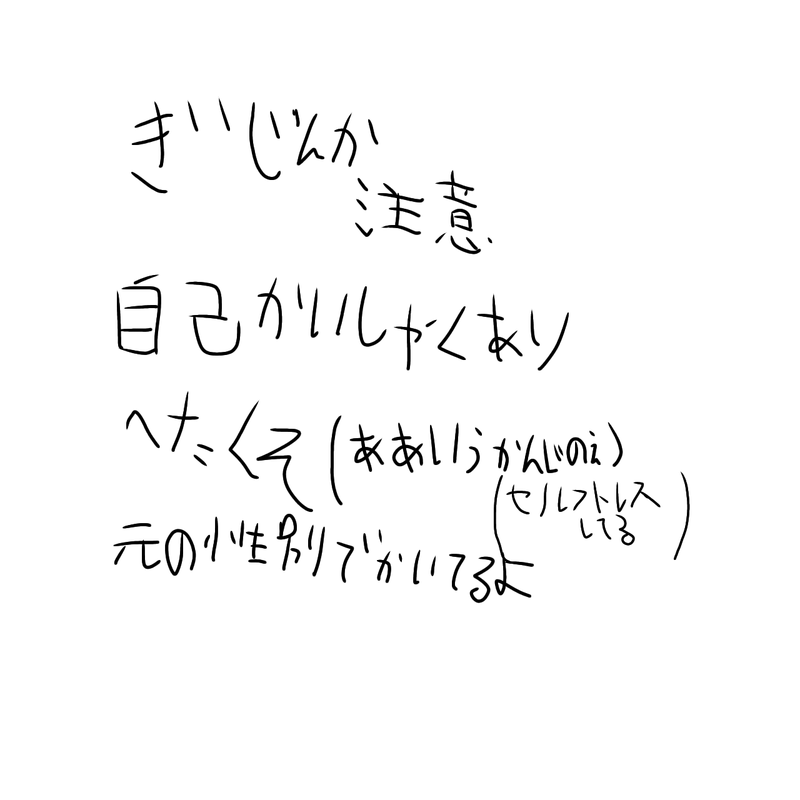 ぎじんか
注意
自己かいしゃくあり
へたくそ(ああいうかんじのえ)
(セルフトレスしてる)
元の性別でかいてるよ